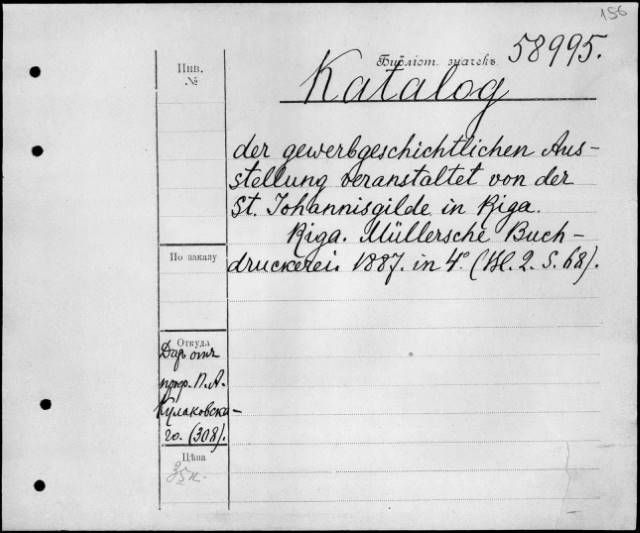 156
Инв.
№
Библіот. значекъ 58995.
Katalog
der gewerbgeschichtlichen Aus-
stellung veranstaltet von der
St. Johannisgilde in Riga.
Riga. Müllersche Buch-
druckerei. 1887. in 4° (Bl. 2. S. 68).
По заказу
Откуда
Даръ отъ
проф. П. А.
Кулаковска-
го. (308).
Цѣна
35 к.